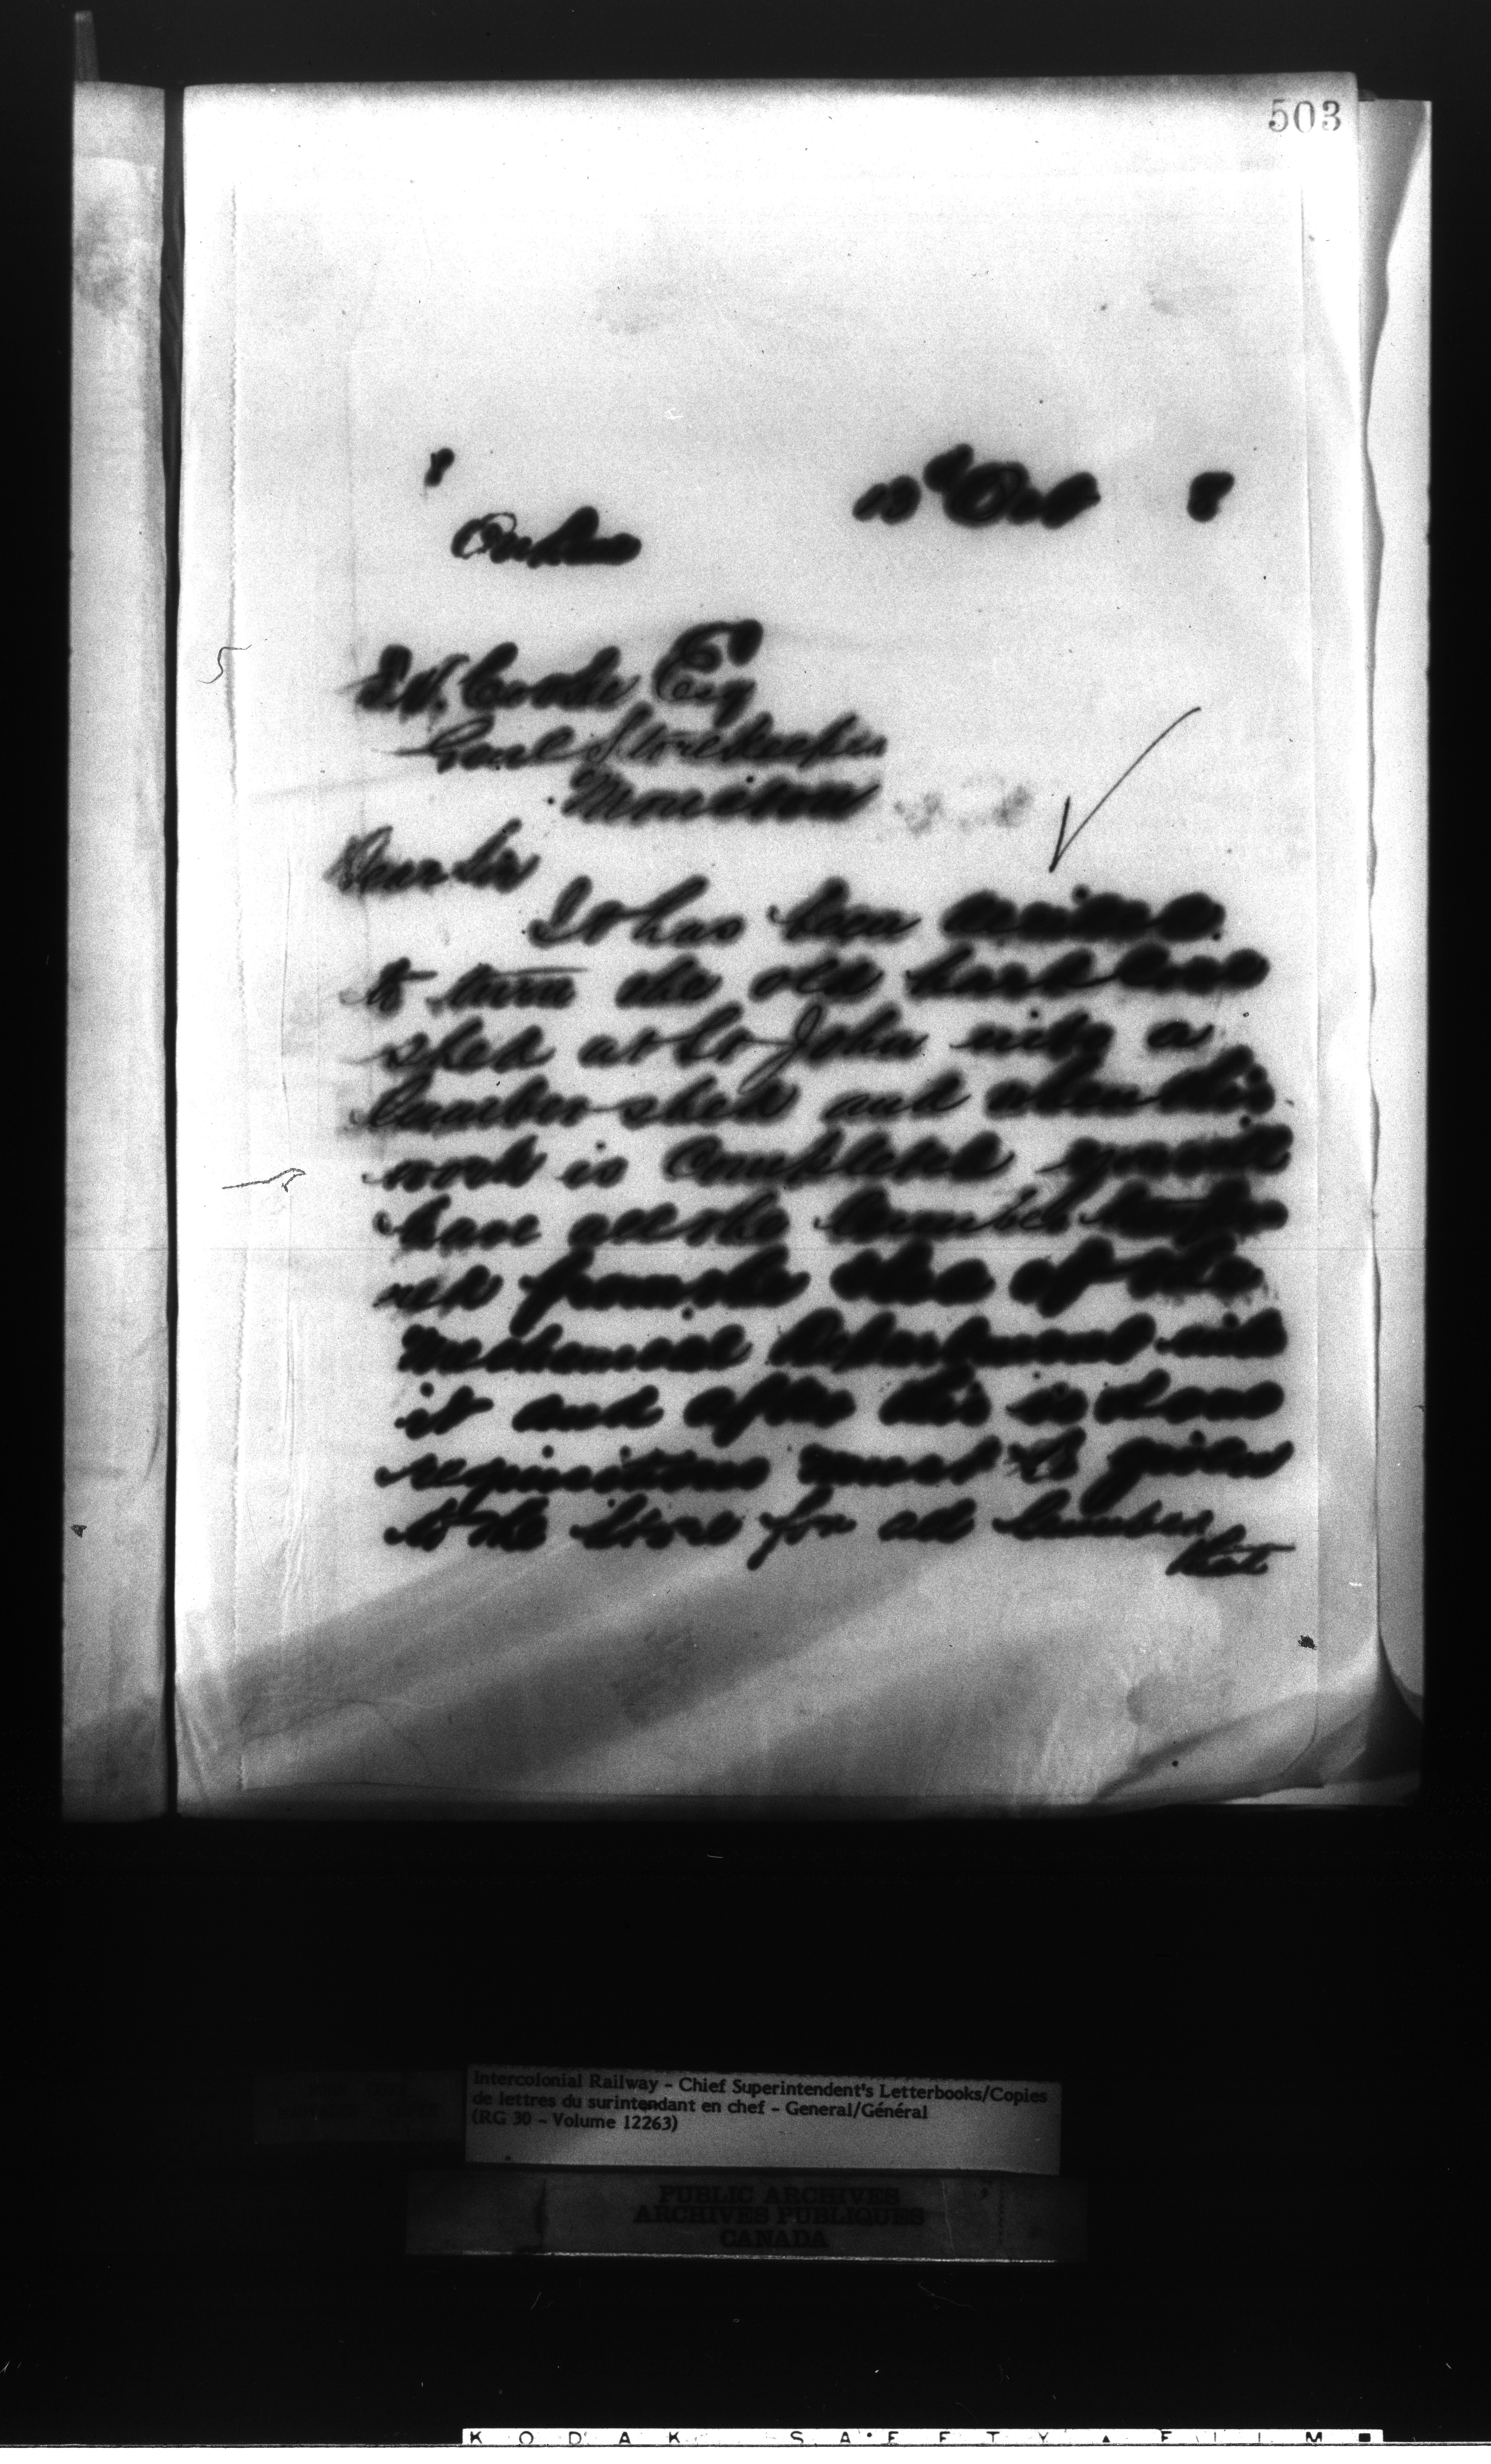 503
8
13th Oct 8
E.V. Cooke Esq
Genl Storekeeper
Moncton
Dear Sir
It has been
to turn the old
shed at St John into a
lumber shed and when this
work is completed
have all the lumber
from the of the
Mechanical Department into
it and after this is done
requisitions must be given
to the Store for all lumber
that
Intercolonial Railway - Chief Superintendent's Letterbooks/Copies
de lettres du surintendant en chef - General/Général
(RG 30 - Volume 12263)
PUBLIC ARCHIVES
ARCHIVES PUBLIQUES
CANADA
KODAK SAFETY FILM